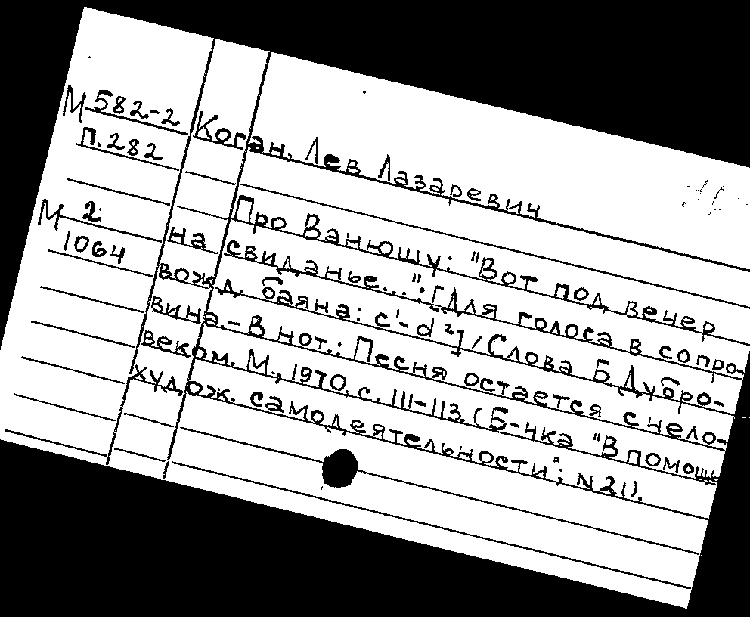 М 582-2
П.282
Коган, Лев Лазаревич
М 2
1064
Про Ванюшу: "Вот под вечер
на свиданье...": [Для голоса в сопро-
вожд. баяна: c¹-d²] / Слова Б. Дубро-
вина. – В нот.: Песня остается с чело-
веком. М., 1970, с. 111-113. (Б-чка "В помощь
худож. самодеятельности"; N 21).